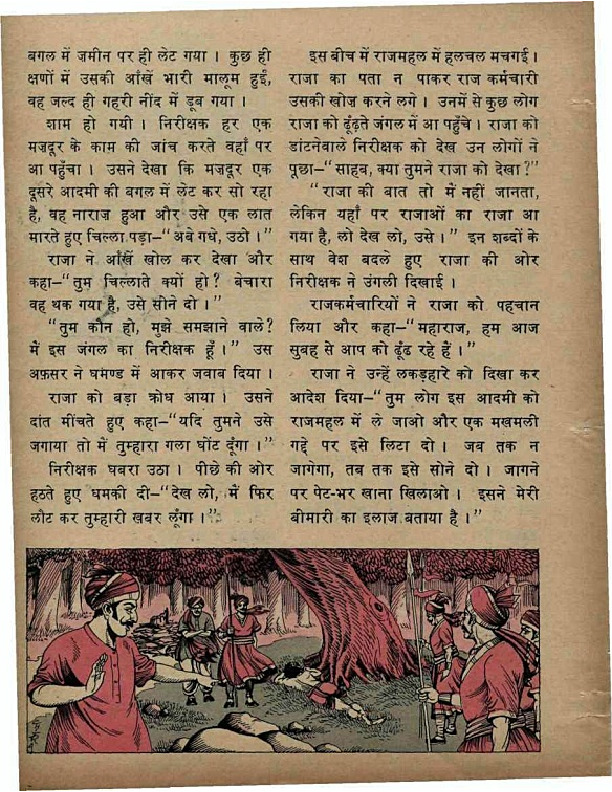 बगल में ज़मीन पर ही लेट गया । कुछ ही
क्षणों में उसकी आँखें भारी मालूम हुईं,
वह जल्द ही गहरी नींद में डूब गया ।
शाम हो गयी । निरीक्षक हर एक
मज़दूर के काम की जांच करते वहाँ पर
आ पहुँचा । उसने देखा कि मज़दूर एक
दूसरे आदमी की बगल में लेट कर सो रहा
है, वह नाराज़ हुआ और उसे एक लात
मारते हुए चिल्ला पड़ा–“अबे गधे, उठो ।”
राजा ने आँखें खोल कर देखा और
कहा–“तुम चिल्लाते क्यों हो? बेचारा
वह थक गया है, उसे सोने दो ।”
“तुम कौन हो, मुझे समझाने वाले?
मैं इस जंगल का निरीक्षक हूँ ।” उस
अफ़सर ने घमण्ड में आकर जवाब दिया ।
राजा को बड़ा क्रोध आया । उसने
दांत मींचते हुए कहा–“यदि तुमने उसे
जगाया तो मैं तुम्हारा गला घोंट दूंगा ।”
निरीक्षक घबरा उठा । पीछे की ओर
हटते हुए धमकी दी–“देख लो, मैं फिर
लौट कर तुम्हारी खबर लूंगा ।”
इस बीच में राजमहल में हलचल मचगई ।
राजा का पता न पाकर राज कर्मचारी
उसकी खोज करने लगे । उनमें से कुछ लोग
राजा को ढूँढ़ते जंगल में आ पहुँचे । राजा को
डांटनेवाले निरीक्षक को देख उन लोगों ने
पूछा–“साहब, क्या तुमने राजा को देखा?”
“राजा की बात तो मैं नहीं जानता,
लेकिन यहाँ पर राजाओं का राजा आ
गया है, लो देख लो, उसे ।” इन शब्दों के
साथ वेश बदले हुए राजा की ओर
निरीक्षक ने उंगली दिखाई ।
राजकर्मचारियों ने राजा को पहचान
लिया और कहा–“महाराज, हम आज
सुबह से आप को ढूँढ़ रहे हैं ।”
राजा ने उन्हें लकड़हारे को दिखा कर
आदेश दिया–“तुम लोग इस आदमी को
राजमहल में ले जाओ और एक मखमली
गद्दे पर इसे लिटा दो । जब तक न
जागेगा, तब तक इसे सोने दो । जागने
पर पेट-भर खाना खिलाओ । इसने मेरी
बीमारी का इलाज बताया है ।”